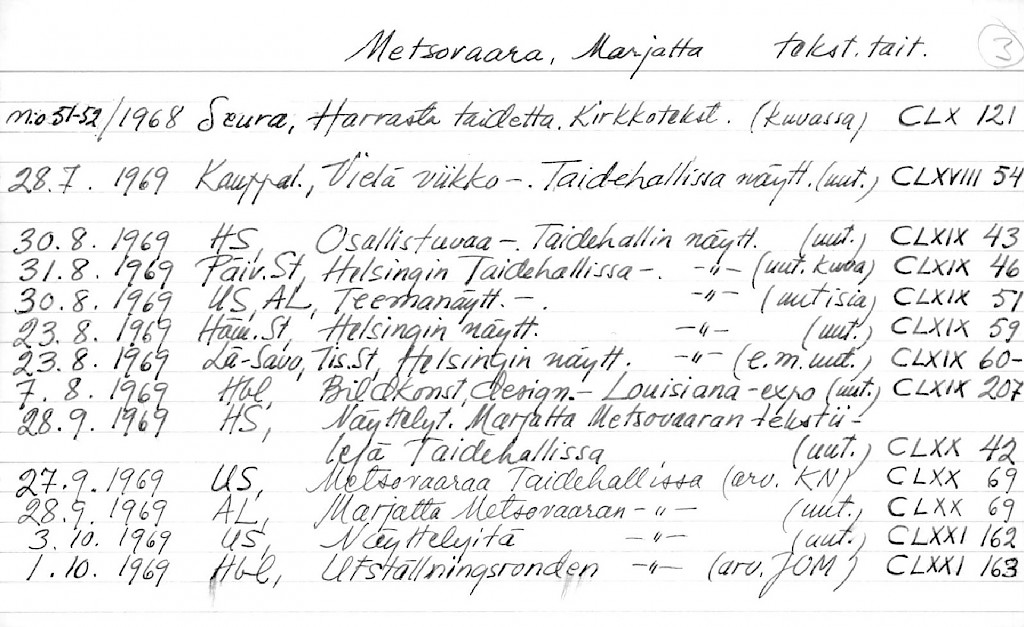 Metsovaara, Marjatta tekst. tait. 3
n:o 51-52/1968 Seura, Harrasta taidetta. Kirkkotekst. (kuvassa) CLX 121
28.7. 1969 Kauppal., Vielä viikko -. Taidehallissa näytt. (uut.) CLXVIII 54
30.8. 1969 HS, Osallistuvaa -. Taidehallin näytt. (uut.) CLXIX 43
31.8. 1969 Päiv.St, Helsingin Taidehallissa -. -"- (uut. kuva) CLXIX 46
30.8. 1969 US, AL, Teemanäytt. -. -"- (uutisia) CLXIX 51
23.8. 1969 Häm.St, Helsingin näytt. -"- (uut.) CLXIX 59
23.8. 1969 Lä-Savo, Tis.St, Helsingin näytt. -"- (e.m. uut.) CLXIX 60-
7.8. 1969 Hbl, Bildkonst, design. - Louisiana-expo (uut.) CLXIX 207
28.9. 1969 HS, Näyttelyt. Marjatta Metsovaaran tekstii-
lejä Taidehallissa (uut.) CLXX 42
27.9. 1969 US, Metsovaaraa Taidehallissa (arv. KN) CLXX 69
28.9. 1969 AL, Marjatta Metsovaaran -"- (uut.) CLXX 69
3.10. 1969 US, Näyttelyitä -"- (uut.) CLXXI 162
1.10. 1969 Hbl, Utställningsronden -"- (arv. JOM) CLXXI 163